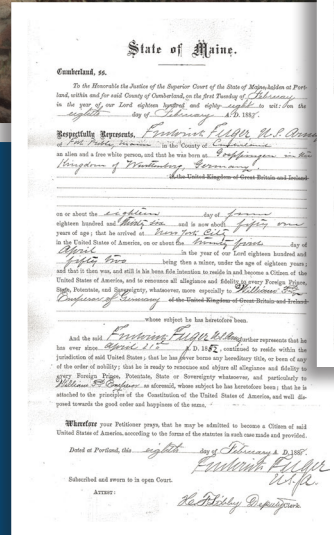 State of Maine.
Cumberland, ss.
To the Honorable the Justice of the Superior Court of the State of Maine, holden at Port-
land, within and for said County of Cumberland, on the first Tuesday of February
in the year of our Lord eighteen hundred and eighty eight to wit: on the
eighth day of February A. D. 1888.
Respectfully Represents, Frederick Fuger, U.S. Army
of Fort Preble, Maine in the County of Cumberland
an alien and a free white person, and that he was born at Goeppingen in the
Kingdom of Wurtemberg, Germany
of the United Kingdom of Great Britain and Ireland
on or about the eighteen day of June
eighteen hundred and thirty six and is now about fifty one
years of age; that he arrived at New York City
in the United States of America, on or about the twenty first day of
April in the year of our Lord eighteen hundred and
fifty two being then a minor, under the age of eighteen years;
and that it then was, and still is his bona fide intention to reside in and become a Citizen of the
United States of America, and to renounce all allegiance and fidelity to every Foreign Prince,
State, Potentate, and Sovereignty, whatsoever, more especially to William
Emperor of Germany of the United Kingdom of Great Britain and Ireland
whose subject he has heretofore been.
And the said Frederick Fuger U.S. Army further represents that he
has ever since April 21st A. D. continued to reside within the
jurisdiction of said United States; that he has never borne any hereditary title, or been of any
of the order of nobility; that he is ready to renounce and abjure all allegiance and fidelity to
every Foreign Prince, Potentate, State or Sovereignty whatsoever, and particularly to
William Emperor as aforesaid, whose subject he has heretofore been; that he is
attached to the principles of the Constitution of the United States of America, and well dis-
posed towards the good order and happiness of the same.
Wherefore your Petitioner prays, that he may be admitted to become a Citizen of said
United States of America, according to the forms of the statutes in such case made and provided.
Dated at Portland, this eighth day of February A. D. 1888.
Frederick Fuger
U.S.A.
Subscribed and sworn to in open Court.
Attest:
Deputy Clerk